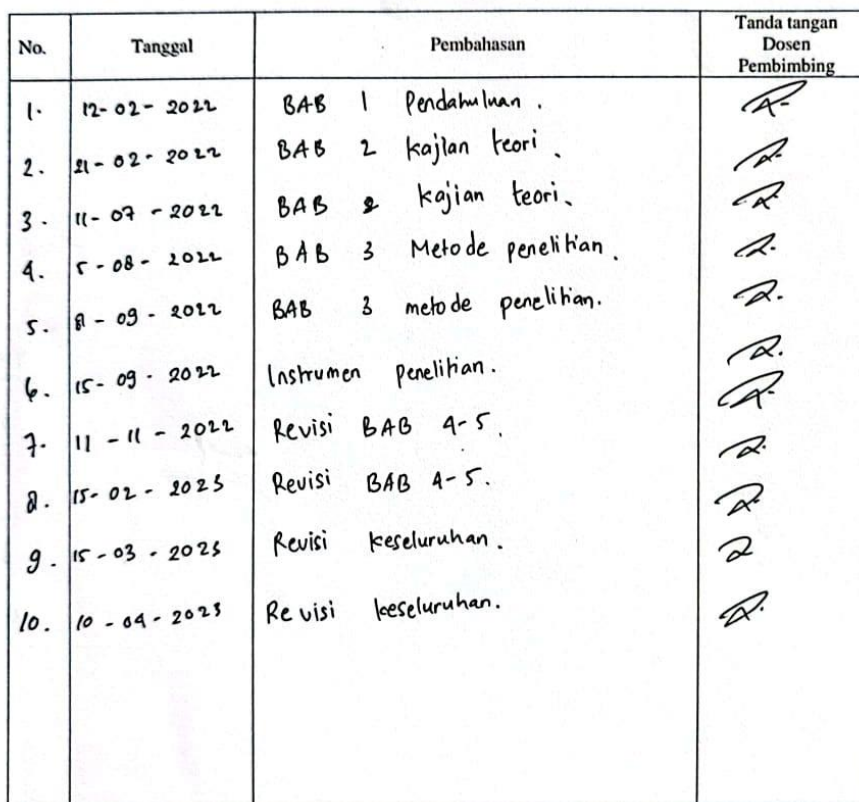 No. Tanggal Pembahasan Tanda tangan
Dosen
Pembimbing
1. 12-02-2022 BAB 1 Pendahuluan.
2. 21-02-2022 BAB 2 Kajian teori.
3. 11-07-2022 BAB 2 Kajian teori.
4. 5-08-2022 BAB 3 Metode penelitian.
5. 8-09-2022 BAB 3 metode penelitian.
6. 15-09-2022 Instrumen penelitian.
7. 11-11-2022 Revisi BAB 4-5.
8. 15-02-2023 Revisi BAB 4-5.
9. 15-03-2023 Revisi keseluruhan.
10. 10-04-2023 Revisi keseluruhan.